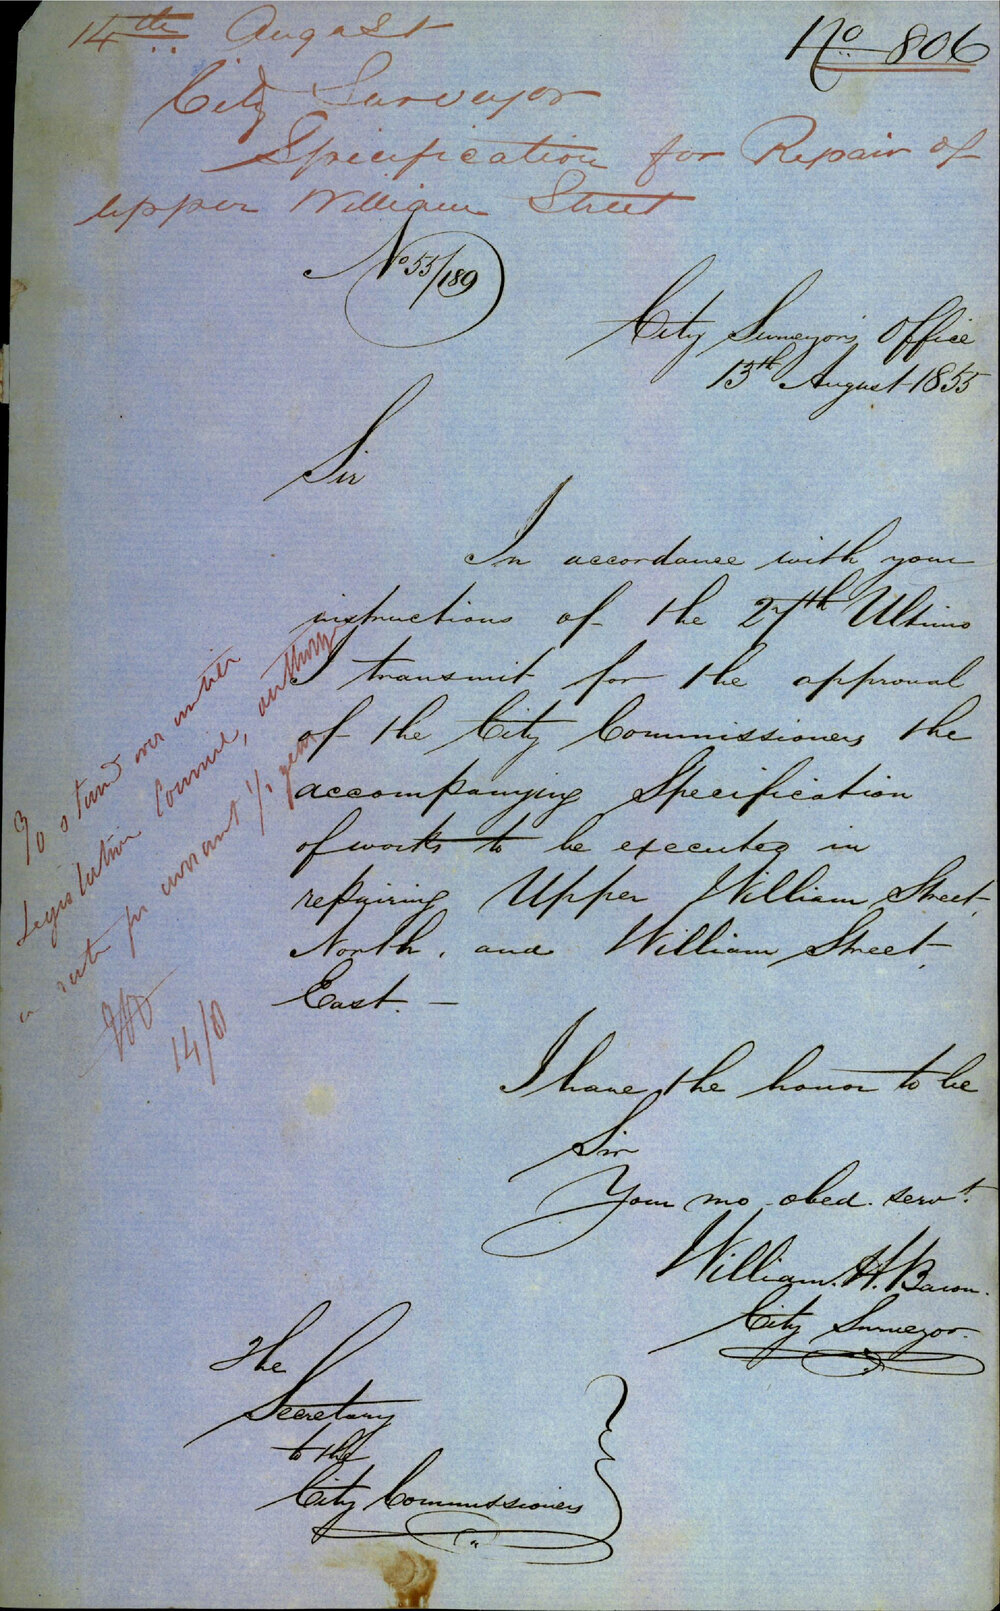 14th August
No 806
City Surveyor
Specification for Repair of
Upper William Street
No 55/189
City Surveyor's Office
13th August 1855
Sir
In accordance with your
instructions of the 27th Ultimo
I transmit for the approval
of the City Commissioners the
accompanying Specification
of works to be executed in
repairing Upper William Street
North, and William Street
East. —
To stand over until
Legislative Council, authorize
a rate for current 1/2 year
14/8
I have the honor to be
Sir
Your mo obed. servt.
William. H. Baron.
City Surveyor.
The
Secretary
to the
City Commissioners